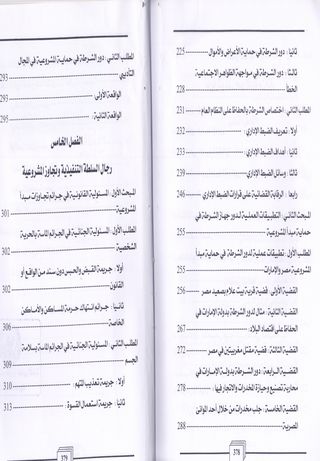 ثانيا : دور الشرطة في حماية الأعراض والأموال ............ 225
ثالثا : دور الشرطة في مواجهة الظواهر الاجتماعية
الخطا ............ 228
المطلب الثاني : اختصاص الشرطة بالحفاظ على النظام العام 231
أولا : تعريف الضبط الإداري : ............ 231
ثانيا : أهداف الضبط الإداري : ............ 233
ثالثا : وسائل الضبط الإداري : ............ 239
رابعا : الرقابة القضائية على قرارات الضبط الإداري ...... 246
المبحث الثاني : التطبيقات العملية لدور جهاز الشرطة في
حماية مبدأ المشروعية ............ 255
المطلب الأول : تطبيقات عملية لدور الشرطة في حماية مبدأ
المشروعية مصر والإمارات ............ 255
القضية الأولى : قضية قرية بيت علام بصعيد مصر ...... 256
القضية الثانية : مثال لدور الشرطة بدولة الإمارات في
الحفاظ على اقتصاد البلاد : ............ 267
القضية الثالثة : قضية مقتل مغربيتين في مصر ...... 272
القضية الرابعة : دور الشرطة بدولة الإمارات في
محاربة تصنيع وحيازة المخدرات والاتجار فيها : ...... 278
القضية الخامسة : جلب مخدرات من خلال أحد الموانئ
المصرية ............ 288
378
المطلب الثاني : دور الشرطة في حماية المشروعية في المجال
التأديبي ............ 293
الواقعة الأولى : ............ 293
الواقعة الثانية : ............ 295
الفصل الخامس
رجال السلطة التنفيذية وتجاوز المشروعية
المبحث الأول : المسئولية القانونية في جرائم تجاوزات مبدأ
المشروعية ............ 301
المطلب الأول : المسئولية الجنائية في الجرائم الماسة بالحرية
الشخصية ............ 302
أولا : جريمة القبض والحبس دون سند من الواقع أو
القانون ............ 302
ثانيا : جرائم انتهاك حرمة المساكن والأماكن
الخاصة ............ 306
المطلب الثاني : المسئولية الجنائية في الجرائم الماسة بسلامة
الجسم ............ 309
أولا : جريمة تعذيب المتهم : ............ 310
ثانيا : جريمة استعمال القسوة : ............ 313
379